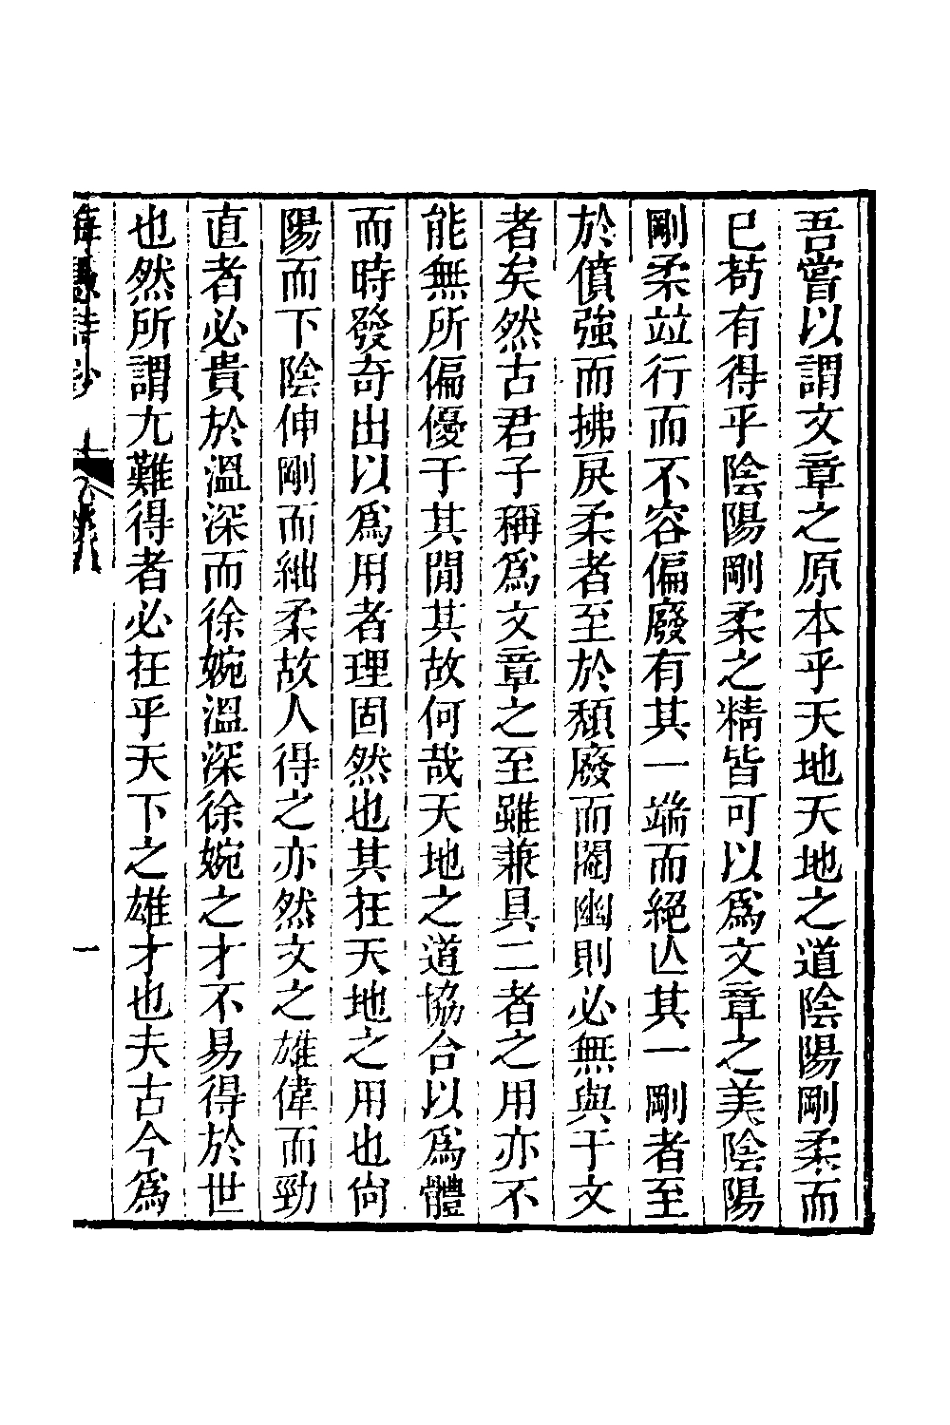 吾嘗以謂文章之原本乎天地天地之道陰陽剛柔而
已苟有得乎陰陽剛柔之精皆可以爲文章之美陰陽
剛柔竝行而不容偏廢有其一端而絕亾其一剛者至
於僨強而拂戾柔者至於頹廢而閹幽則必無與于文
者矣然古君子稱爲文章之至雖兼具二者之用亦不
能無所偏優于其閒其故何哉天地之道協合以爲體
而時發奇出以爲用者理固然也其在天地之用也尙
陽而下陰伸剛而絀柔故人得之亦然文之雄偉而勁
直者必貴於溫深而徐婉溫深徐婉之才不易得於世
也然所謂尢難得者必在乎天下之雄才也夫古今爲
海愚詩鈔
一